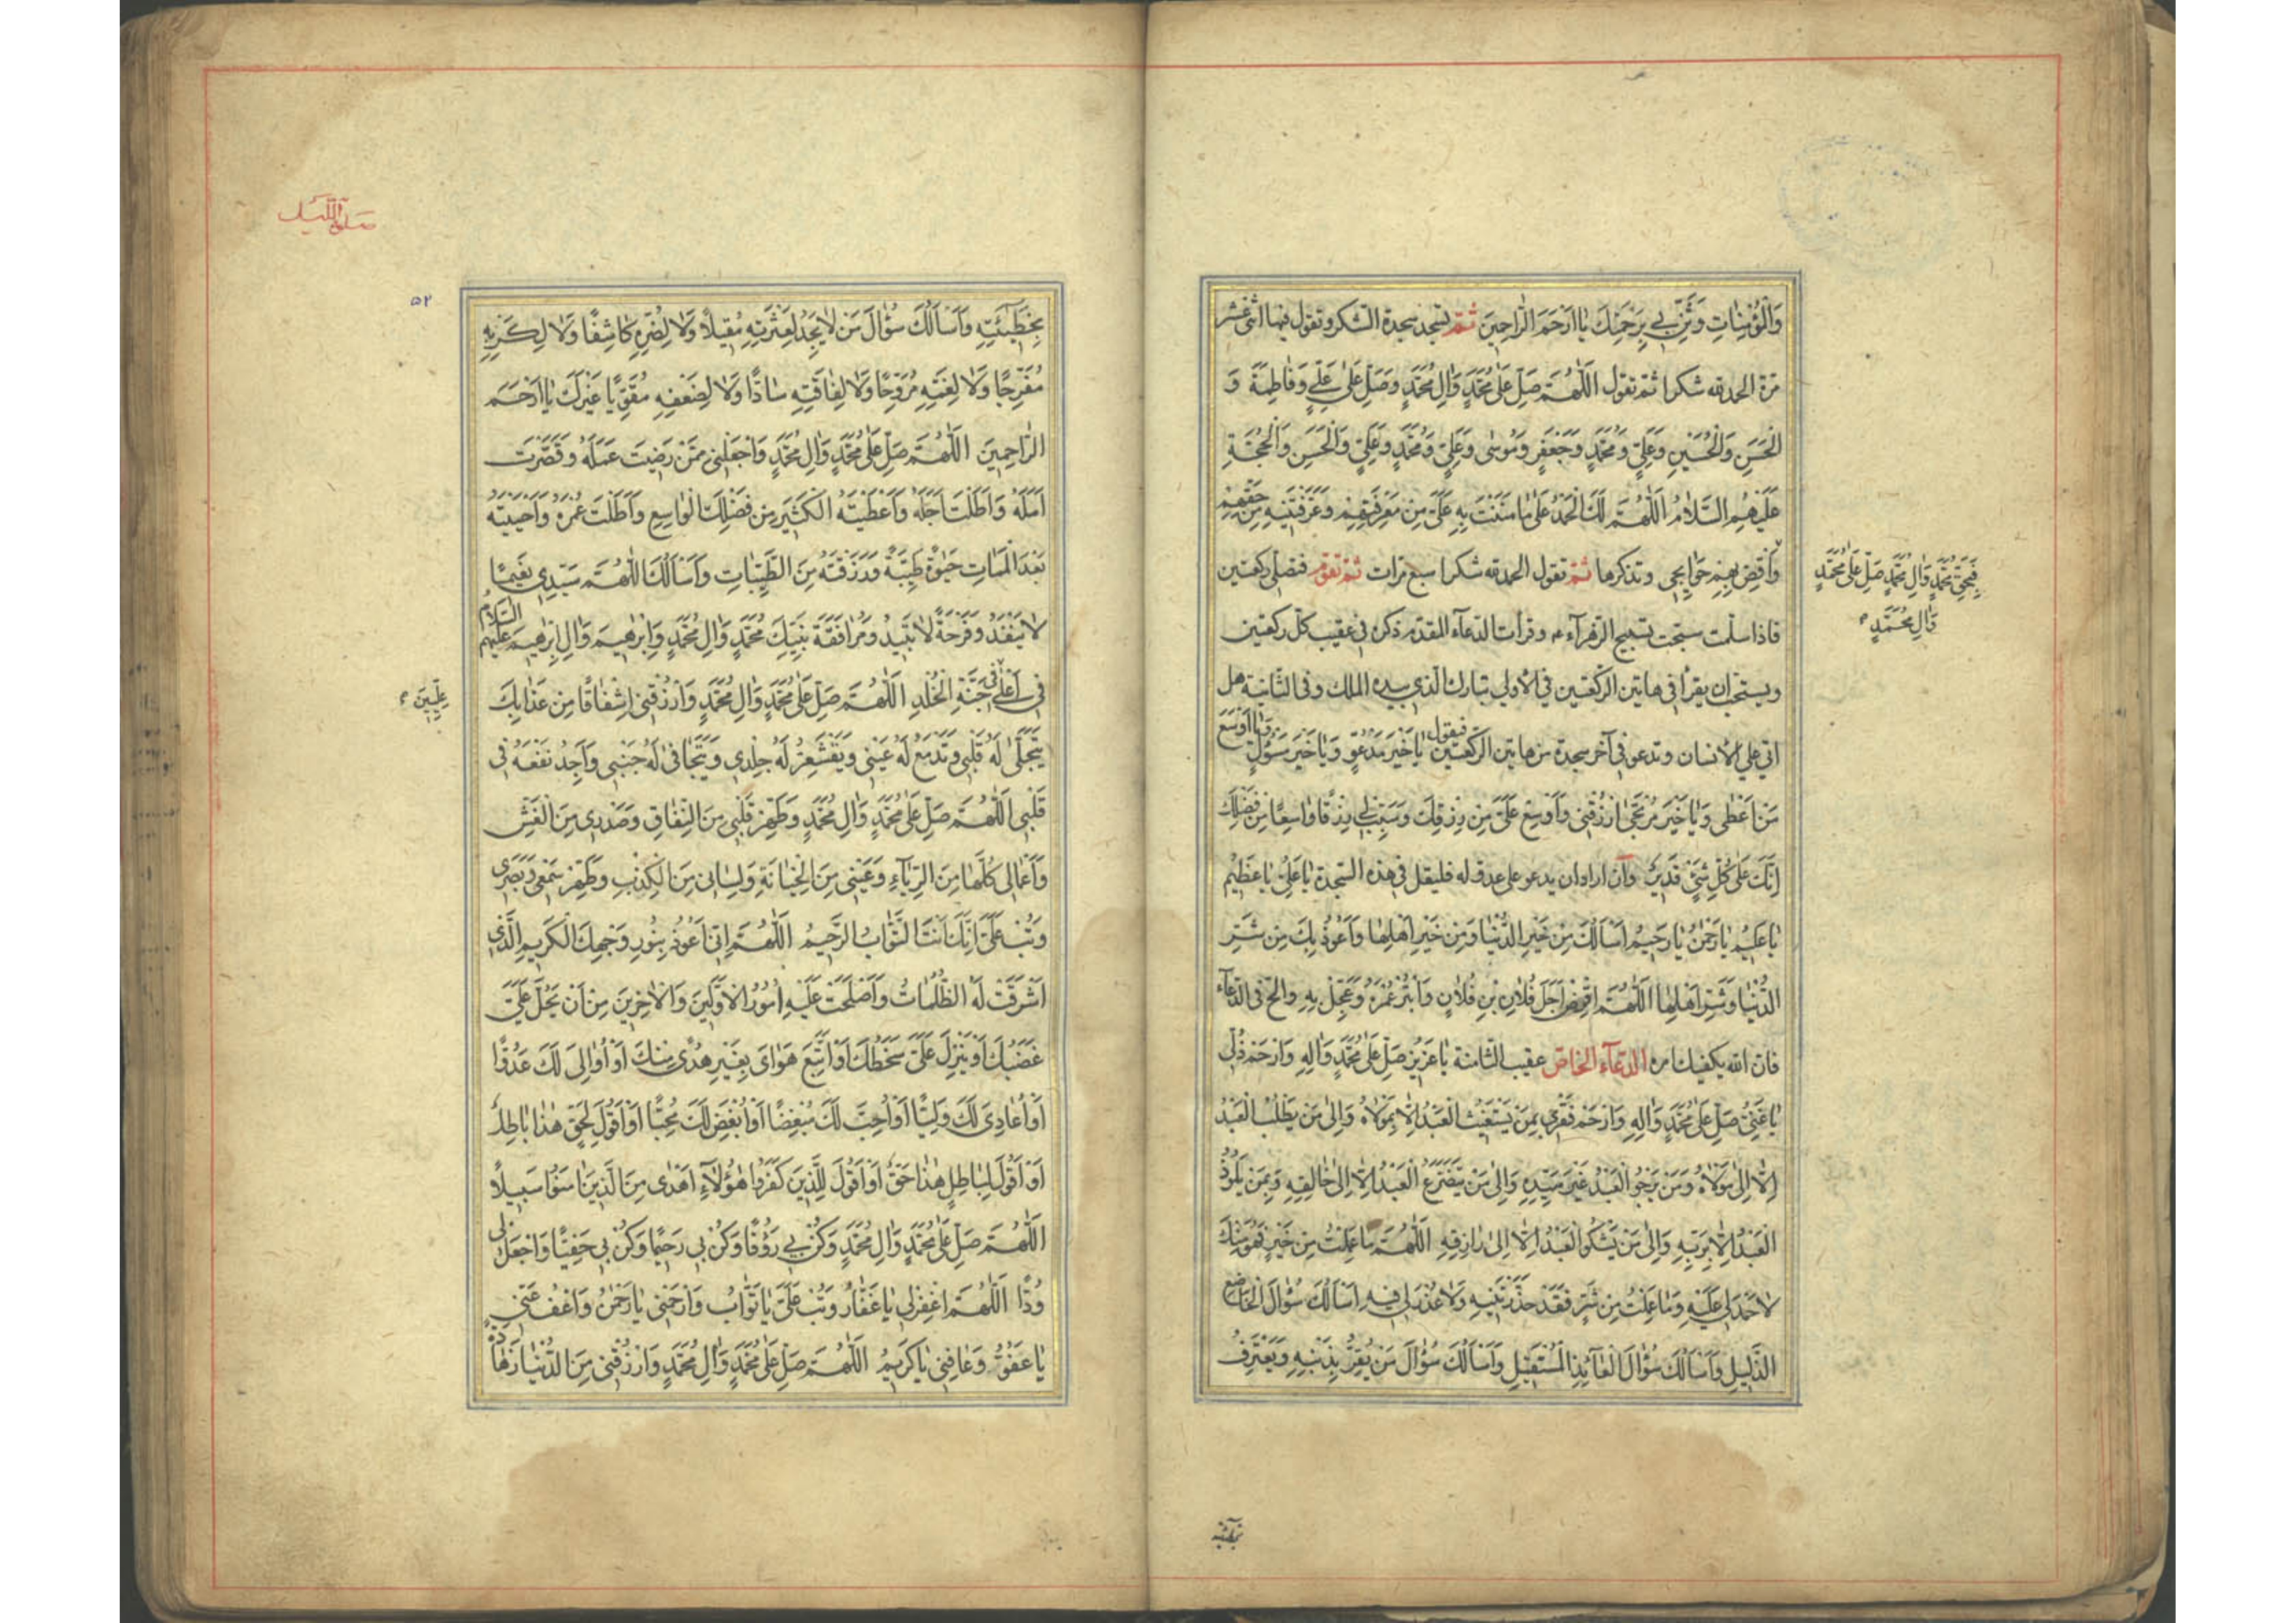 وَالْمُؤْمِنَاتِ وَثَنِّ بِي بِرَحْمَتِكَ يَا اَرْحَمَ الرَّاحِمِينَ ثمّ تسجد سجدة الشكر وتقول فيها اثنى عشر
مرّة الحمد لله شكرا ثمّ تقول اَللّٰهُمَّ صَلِّ عَلٰى مُحَمَّدٍ وَاٰلِ مُحَمَّدٍ وَصَلِّ عَلٰى عَلِيٍّ وَفَاطِمَةَ وَ
الْحَسَنِ وَالْحُسَيْنِ وَعَلِيٍّ وَمُحَمَّدٍ وَجَعْفَرٍ وَمُوسٰى وَعَلِيٍّ وَمُحَمَّدٍ وَعَلِيٍّ وَالْحَسَنِ وَالْحُجَّةِ
عَلَيْهِمُ السَّلَامُ اَللّٰهُمَّ لَكَ الْحَمْدُ عَلٰى مَا مَنَنْتَ بِهِ عَلَيَّ مِنْ مَعْرِفَتِهِمْ وَعَرَّفْتَنِيهِ مِنْ حَقِّهِمْ
وَاقْضِ بِهِمْ حَوَائِجِي وتذكرها ثمّ تقول الحمد لله شكرا سبع مرات ثمّ تقوم فتصلي ركعتين
فَبِحَقِّ مُحَمَّدٍ وَاٰلِ مُحَمَّدٍ صَلِّ عَلٰى مُحَمَّدٍ
وَاٰلِ مُحَمَّدٍ
فاذا سلّمت سبّحت تسبيح الزهرآء ع وقرأت الدعآء المقدم ذكره في عقيب كل ركعتين
ويستحب ان يقرأ في هاتين الركعتين في الأولى تبارك الذي بيده الملك وفي الثانية هل
اتى على الأنسان وتدعو في آخر سجدة من هاتين الركعتين فيقول يَا خَيْرَ مَدْعُوٍّ وَيَا خَيْرَ مَسْؤُلٍ وَيَا اَوْسَعَ
مَنْ اَعْطٰى وَيَا خَيْرَ مُرْتَجٰى ارْزُقْنِي وَاَوْسِعْ عَلَيَّ مِنْ رِزْقِكَ وَسَبِّبْ لِي رِزْقًا وَاسِعًا مِنْ فَضْلِكَ
اِنَّكَ عَلٰى كُلِّ شَيْءٍ قَدِيرٌ وان اراد ان يدعو على عدوّ له فليقل في هذه السّجدة يَا عَلِيُّ يَا عَظِيمُ
يَا عَلِيمُ يَا رَحْمٰنُ يَا رَحِيمُ اَسْاَلُكَ مِنْ خَيْرِ الدُّنْيَا وَمِنْ خَيْرِ اَهْلِهَا وَاَعُوذُ بِكَ مِنْ شَرِّ
الدُّنْيَا وَشَرِّ اَهْلِهَا اَللّٰهُمَّ اقْرِضْ اَجَلَ فُلَانِ بْنِ فُلَانٍ وَابْتُرْ عُمْرَهُ وَعَجِّلْ بِهِ والحّ في الدّعآء
فان الله يكفيك امره الدعآء الخاصّ عقيب الثامنة يَا عَزِيزُ صَلِّ عَلٰى مُحَمَّدٍ وَاٰلِهِ وَارْحَمْ ذُلِّي
يَا غَنِيُّ صَلِّ عَلٰى مُحَمَّدٍ وَاٰلِهِ وَارْحَمْ فَقْرِي بِمَنْ يَسْتَغِيثُ الْعَبْدُ اِلَّا بِمَوْلَاهُ وَاِلٰى مَنْ يَطْلُبُ الْعَبْدُ
اِلَّا اِلٰى مَوْلَاهُ وَمَنْ يَرْجُو الْعَبْدُ غَيْرَ سَيِّدِهِ وَاِلٰى مَنْ يَتَضَرَّعُ الْعَبْدُ اِلَّا اِلٰى خَالِقِهِ وَبِمَنْ يَلُوذُ
الْعَبْدُ اِلَّا بِرَبِّهِ وَاِلٰى مَنْ يَشْكُو الْعَبْدُ اِلَّا اِلٰى رَازِقِهِ اَللّٰهُمَّ مَا عَمِلْتُ مِنْ خَيْرٍ فَهُوَ مِنْكَ
لَا حَمْدَ لِي عَلَيْهِ وَمَا عَمِلْتُ مِنْ شَرٍّ فَقَدْ حَذَّرْتَنِيهِ وَلَا عُذْرَ لِي فِيهِ اَسْاَلُكَ سُؤَالَ الْخَاضِعِ
الذَّلِيلِ وَاَسْاَلُكَ سُؤَالَ الْعَائِذِ الْمُسْتَقِيلِ وَاَسْاَلُكَ سُؤَالَ مَنْ يُقِرُّ بِذَنْبِهِ وَيَعْتَرِفُ
بخطيئته
صلوة الليل
٥٢
بِخَطِيئَتِهِ وَاَسْاَلُكَ سُؤَالَ مَنْ لَا يَجِدُ لِعَثْرَتِهِ مُقِيلًا وَلَا لِضُرِّهِ كَاشِفًا وَلَا لِكَرْبِهِ
مُفَرِّجًا وَلَا لِغَمِّهِ مُرَوِّحًا وَلَا لِفَاقَتِهِ سَادًّا وَلَا لِضَعْفِهِ مُقَوِّيًا غَيْرَكَ يَا اَرْحَمَ
الرَّاحِمِينَ اَللّٰهُمَّ صَلِّ عَلٰى مُحَمَّدٍ وَاٰلِ مُحَمَّدٍ وَاجْعَلْنِي مِمَّنْ رَضِيتَ عَمَلَهُ وَقَصَّرْتَ
اَمَلَهُ وَاَطَلْتَ اَجَلَهُ وَاَعْطَيْتَهُ الْكَثِيرَ مِنْ فَضْلِكَ الْوَاسِعِ وَاَطَلْتَ عُمْرَهُ وَاَحْيَيْتَهُ
بَعْدَ الْمَمَاتِ حَيٰوةً طَيِّبَةً وَرَزَقْتَهُ مِنَ الطَّيِّبَاتِ وَاَسْاَلُكَ اللّٰهُمَّ سَيِّدِي نَعِيمًا
لَا يَنْفَدُ وَفَرْحَةً لَا تَبِيدُ وَمُرَافَقَةَ نَبِيِّكَ مُحَمَّدٍ وَاٰلِ مُحَمَّدٍ وَاِبْرٰهِيمَ وَاٰلِ اِبْرٰهِيمَ عَلَيْهِمُ السَّلَامُ
فِي اَعْلٰى فِي جَنَّةِ الْخُلْدِ اَللّٰهُمَّ صَلِّ عَلٰى مُحَمَّدٍ وَاٰلِ مُحَمَّدٍ وَارْزُقْنِي اِشْفَاقًا مِنْ عَذَابِكَ
عِلِّيِّينَ
يَتَجَلّٰى لَهُ قَلْبِي وَتَدْمَعُ لَهُ عَيْنِي وَيَقْشَعِرُّ لَهُ جِلْدِي وَيَتَجَافٰى لَهُ جَنْبِي وَاَجِدُ نَفْعَهُ فِي
قَلْبِي اَللّٰهُمَّ صَلِّ عَلٰى مُحَمَّدٍ وَاٰلِ مُحَمَّدٍ وَطَهِّرْ قَلْبِي مِنَ النِّفَاقِ وَصَدْرِي مِنَ الْغِشِّ
وَاَعْمَالِي كُلَّهَا مِنَ الرِّيَاءِ وَعَيْنِي مِنَ الْخِيَانَةِ وَلِسَانِي مِنَ الْكِذْبِ وَطَهِّرْ سَمْعِي وَبَصَرِي
وَتُبْ عَلَيَّ اِنَّكَ اَنْتَ التَّوَّابُ الرَّحِيمُ اَللّٰهُمَّ اِنِّي اَعُوذُ بِنُورِ وَجْهِكَ الْكَرِيمِ الَّذِي
اَشْرَقَتْ لَهُ الظُّلُمَاتُ وَاَصْلَحَتْ عَلَيْهِ اُمُورُ الْاَوَّلِينَ وَالْاٰخِرِينَ مِنْ اَنْ يَحُلَّ عَلَيَّ
غَضَبُكَ اَوْ يَنْزِلَ عَلَيَّ سَخَطُكَ اَوْ اَتَّبِعَ هَوَايَ بِغَيْرِ هُدًى مِنْكَ اَوْ اُوَالِيَ لَكَ عَدُوًّا
اَوْ اُعَادِيَ لَكَ وَلِيًّا اَوْ اُحِبَّ لَكَ مُبْغِضًا اَوْ اُبْغِضَ لَكَ مُحِبًّا اَوْ اَقُولَ لِحَقٍّ هٰذَا بَاطِلٌ
اَوْ اَقُولَ لِبَاطِلٍ هٰذَا حَقٌّ اَوْ اَقُولَ لِلَّذِينَ كَفَرُوا هٰؤُلَاءِ اَهْدٰى مِنَ الَّذِينَ اٰمَنُوا سَبِيلًا
اَللّٰهُمَّ صَلِّ عَلٰى مُحَمَّدٍ وَاٰلِ مُحَمَّدٍ وَكُنْ بِي رَؤُفًا وَكُنْ بِي رَحِيمًا وَكُنْ بِي حَفِيًّا وَاجْعَلْ لِي
وُدًّا اَللّٰهُمَّ اغْفِرْ لِي يَا غَفَّارُ وَتُبْ عَلَيَّ يَا تَوَّابُ وَارْحَمْنِي يَا رَحْمٰنُ وَاعْفُ عَنِّي
يَا عَفُوُّ وَعَافِنِي يَا كَرِيمُ اَللّٰهُمَّ صَلِّ عَلٰى مُحَمَّدٍ وَاٰلِ مُحَمَّدٍ وَارْزُقْنِي مِنَ الدُّنْيَا زَهَادَةً